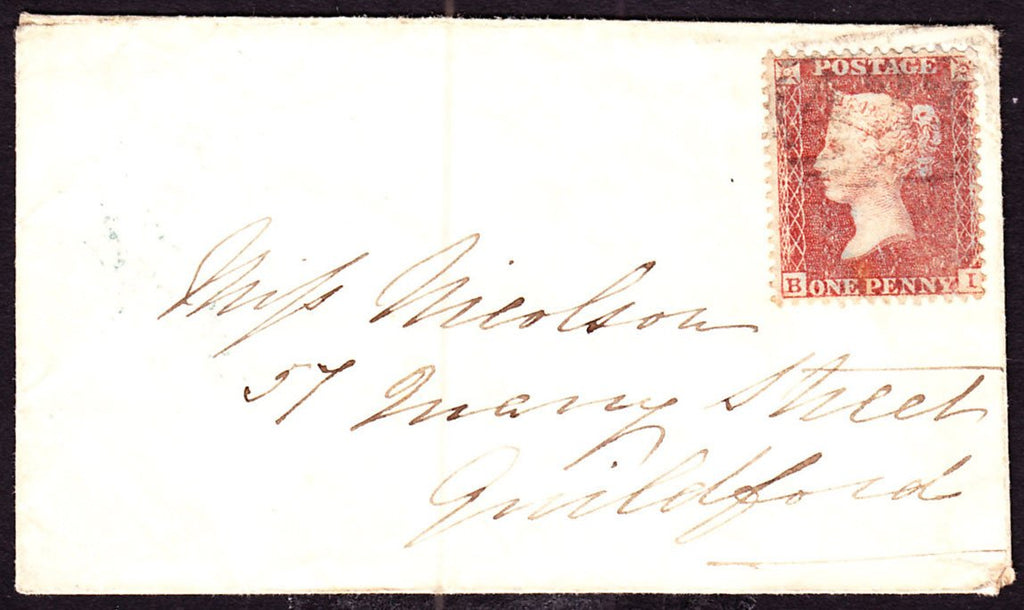 POSTAGE
B ONE PENNY I
Miss Nicolson
57 Quarry Street
Guildford